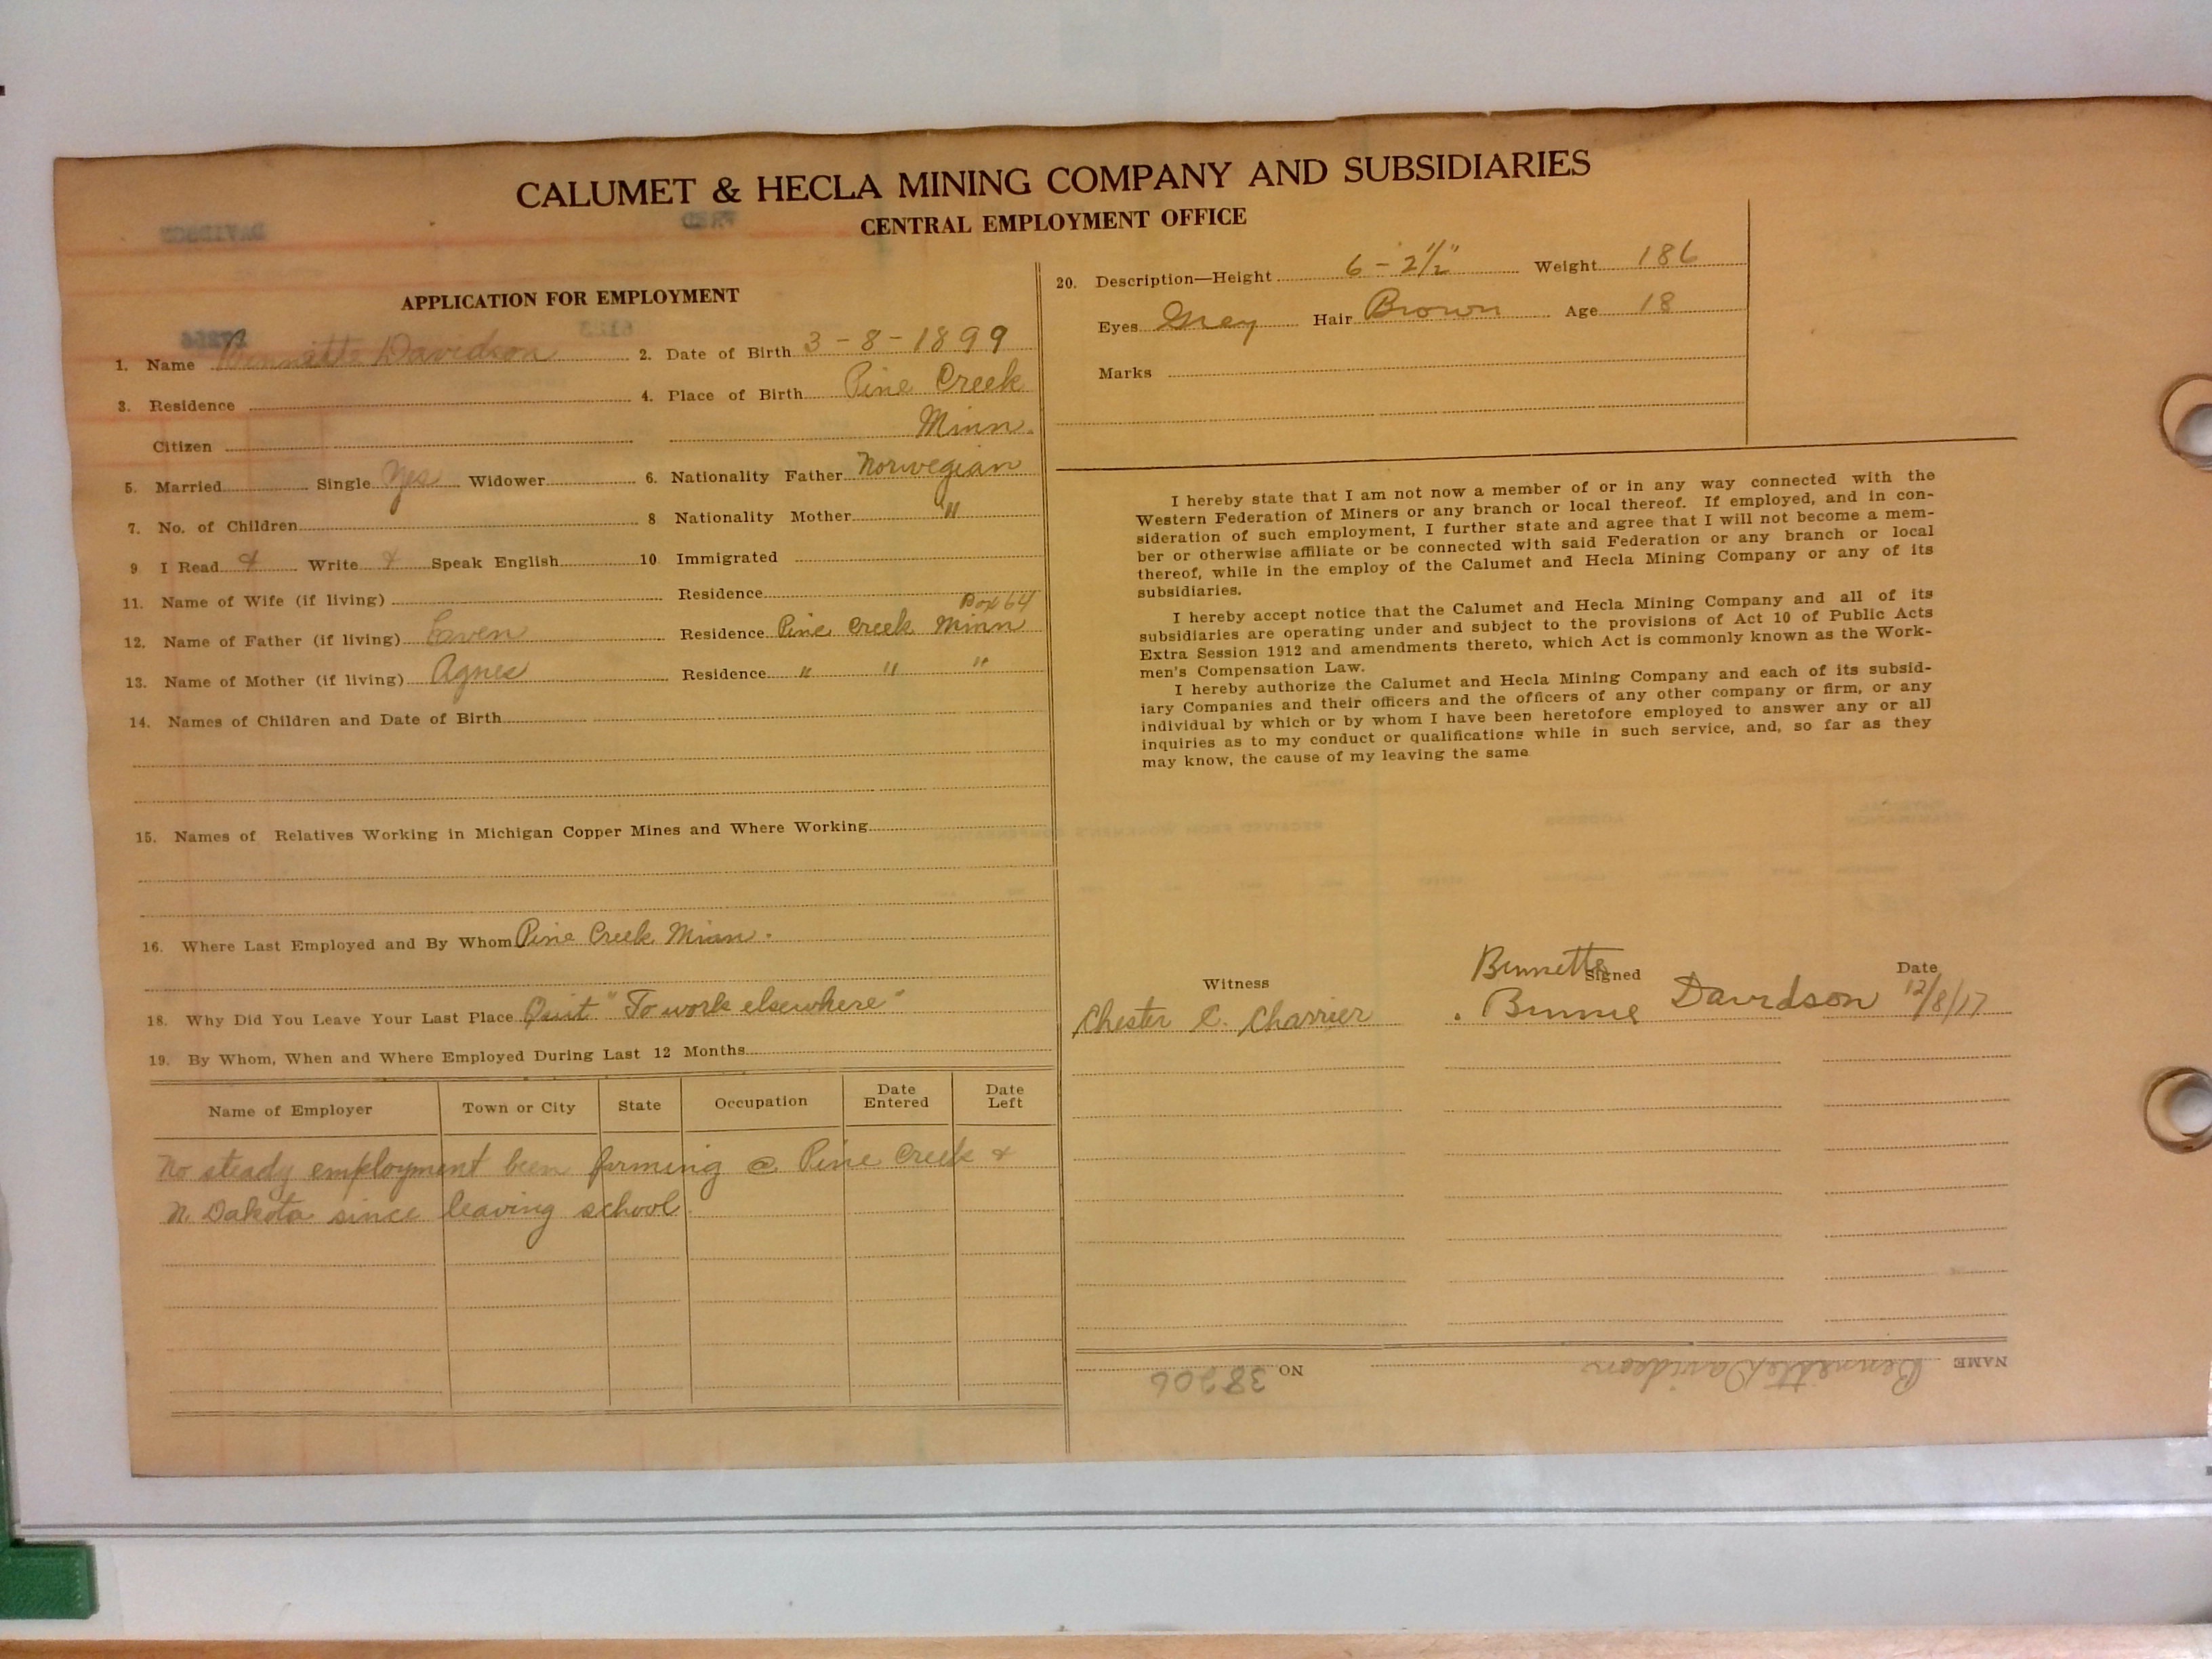 CALUMET & HECLA MINING COMPANY AND SUBSIDIARIES
CENTRAL EMPLOYMENT OFFICE
DAVIDSON
FRED
APPLICATION FOR EMPLOYMENT
1. Name Bennette Davidson
2. Date of Birth 3-8-1899
3. Residence
4. Place of Birth Pine Creek
Citizen
Minn.
5. Married Single Yes Widower
6. Nationality Father Norwegian
7. No. of Children
8 Nationality Mother "
9 I Read & Write & Speak English
10. Immigrated
11. Name of Wife (if living)
Residence
Box 64
12. Name of Father (if living) Even
Residence Pine Creek Minn
13. Name of Mother (if living) Agnes
Residence " " "
14. Names of Children and Date of Birth
15. Names of Relatives Working in Michigan Copper Mines and Where Working
16. Where Last Employed and By Whom Pine Creek Minn.
18. Why Did You Leave Your Last Place Quit "To work elsewhere"
19. By Whom, When and Where Employed During Last 12 Months
Name of Employer Town or City State Occupation Date Entered Date Left
No steady employment been farming @ Pine Creek &
N. Dakota since leaving school
20. Description—Height 6-2½" Weight 186
Eyes Grey Hair Brown Age 18
Marks
I hereby state that I am not now a member of or in any way connected with the
Western Federation of Miners or any branch or local thereof. If employed, and in con-
sideration of such employment, I further state and agree that I will not become a mem-
ber or otherwise affiliate or be connected with said Federation or any branch or local
thereof, while in the employ of the Calumet and Hecla Mining Company or any of its
subsidiaries.
I hereby accept notice that the Calumet and Hecla Mining Company and all of its
subsidiaries are operating under and subject to the provisions of Act 10 of Public Acts
Extra Session 1912 and amendments thereto, which Act is commonly known as the Work-
men's Compensation Law.
I hereby authorize the Calumet and Hecla Mining Company and each of its subsid-
iary Companies and their officers and the officers of any other company or firm, or any
individual by which or by whom I have been heretofore employed to answer any or all
inquiries as to my conduct or qualifications while in such service, and, so far as they
may know, the cause of my leaving the same
Witness Signed Date
Bennette
Chester C. Charrier Bennie Davidson 12/8/17
NAME Bennette Davidson NO 38206